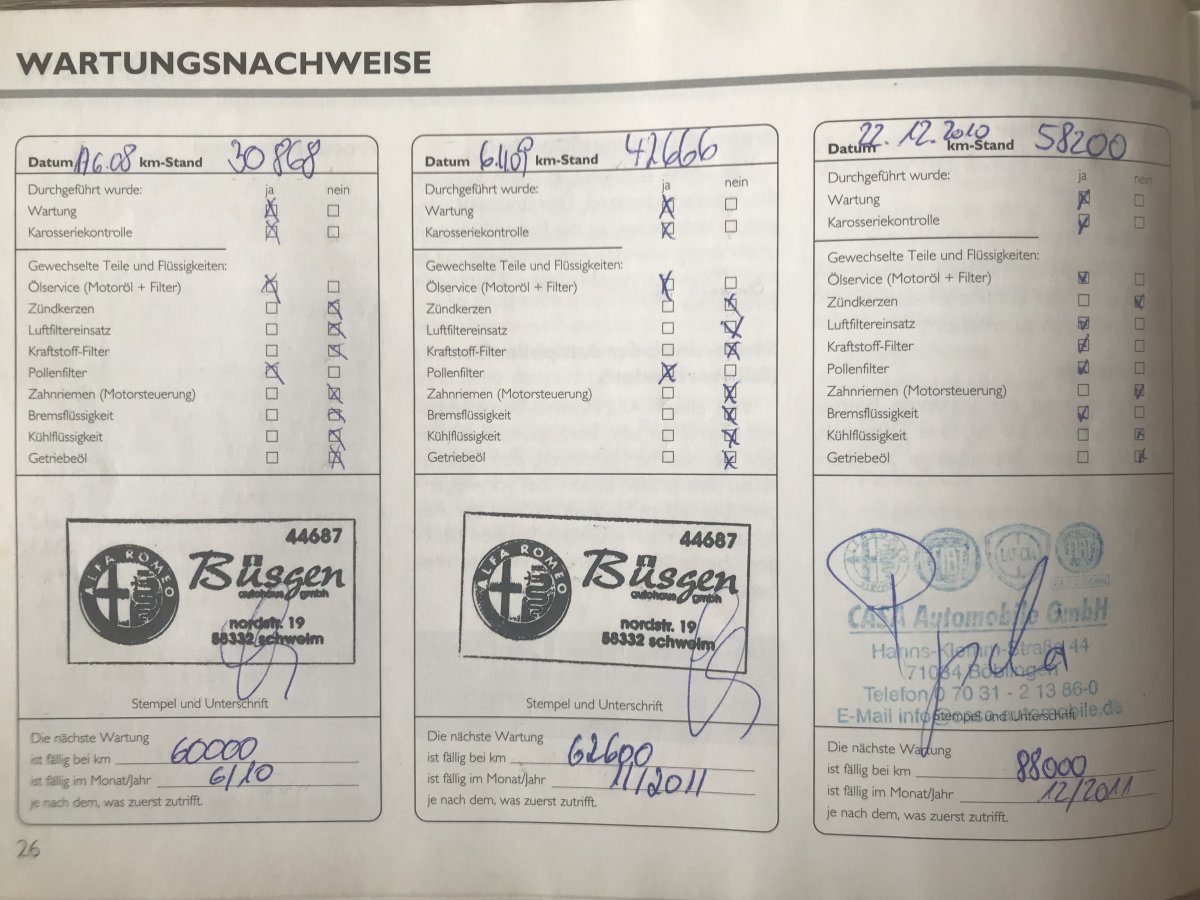 WARTUNGSNACHWEISE
Datum 17.6.08 km-Stand 30868
Durchgeführt wurde: ja nein
Wartung
Karosseriekontrolle
Gewechselte Teile und Flüssigkeiten:
Ölservice (Motoröl + Filter)
Zündkerzen
Luftfiltereinsatz
Kraftstoff-Filter
Pollenfilter
Zahnriemen (Motorsteuerung)
Bremsflüssigkeit
Kühlflüssigkeit
Getriebeöl
44687
ALFA ROMEO
Büsgen
autohaus gmbh
nordstr. 19
58332 schwelm
Stempel und Unterschrift
Die nächste Wartung
ist fällig bei km 60000
ist fällig im Monat/Jahr 6/10
je nach dem, was zuerst zutrifft.
26
Datum 6.11.09 km-Stand 42666
Durchgeführt wurde: ja nein
Wartung
Karosseriekontrolle
Gewechselte Teile und Flüssigkeiten:
Ölservice (Motoröl + Filter)
Zündkerzen
Luftfiltereinsatz
Kraftstoff-Filter
Pollenfilter
Zahnriemen (Motorsteuerung)
Bremsflüssigkeit
Kühlflüssigkeit
Getriebeöl
44687
ALFA ROMEO
Büsgen
autohaus gmbh
nordstr. 19
58332 schwelm
Stempel und Unterschrift
Die nächste Wartung
ist fällig bei km 62600
ist fällig im Monat/Jahr 11/2011
je nach dem, was zuerst zutrifft.
Datum 22.12.2010 km-Stand 58200
Durchgeführt wurde: ja nein
Wartung
Karosseriekontrolle
Gewechselte Teile und Flüssigkeiten:
Ölservice (Motoröl + Filter)
Zündkerzen
Luftfiltereinsatz
Kraftstoff-Filter
Pollenfilter
Zahnriemen (Motorsteuerung)
Bremsflüssigkeit
Kühlflüssigkeit
Getriebeöl
FIAT LANCIA FIAT
PROFESSIONAL
CASA Automobile GmbH
Hanns-Klemm-Straße 44
71034 Böblingen
Telefon 0 70 31 - 2 13 86-0
E-Mail info@casa-automobile.de
Stempel und Unterschrift
Die nächste Wartung
ist fällig bei km 88000
ist fällig im Monat/Jahr 12/2011
je nach dem, was zuerst zutrifft.